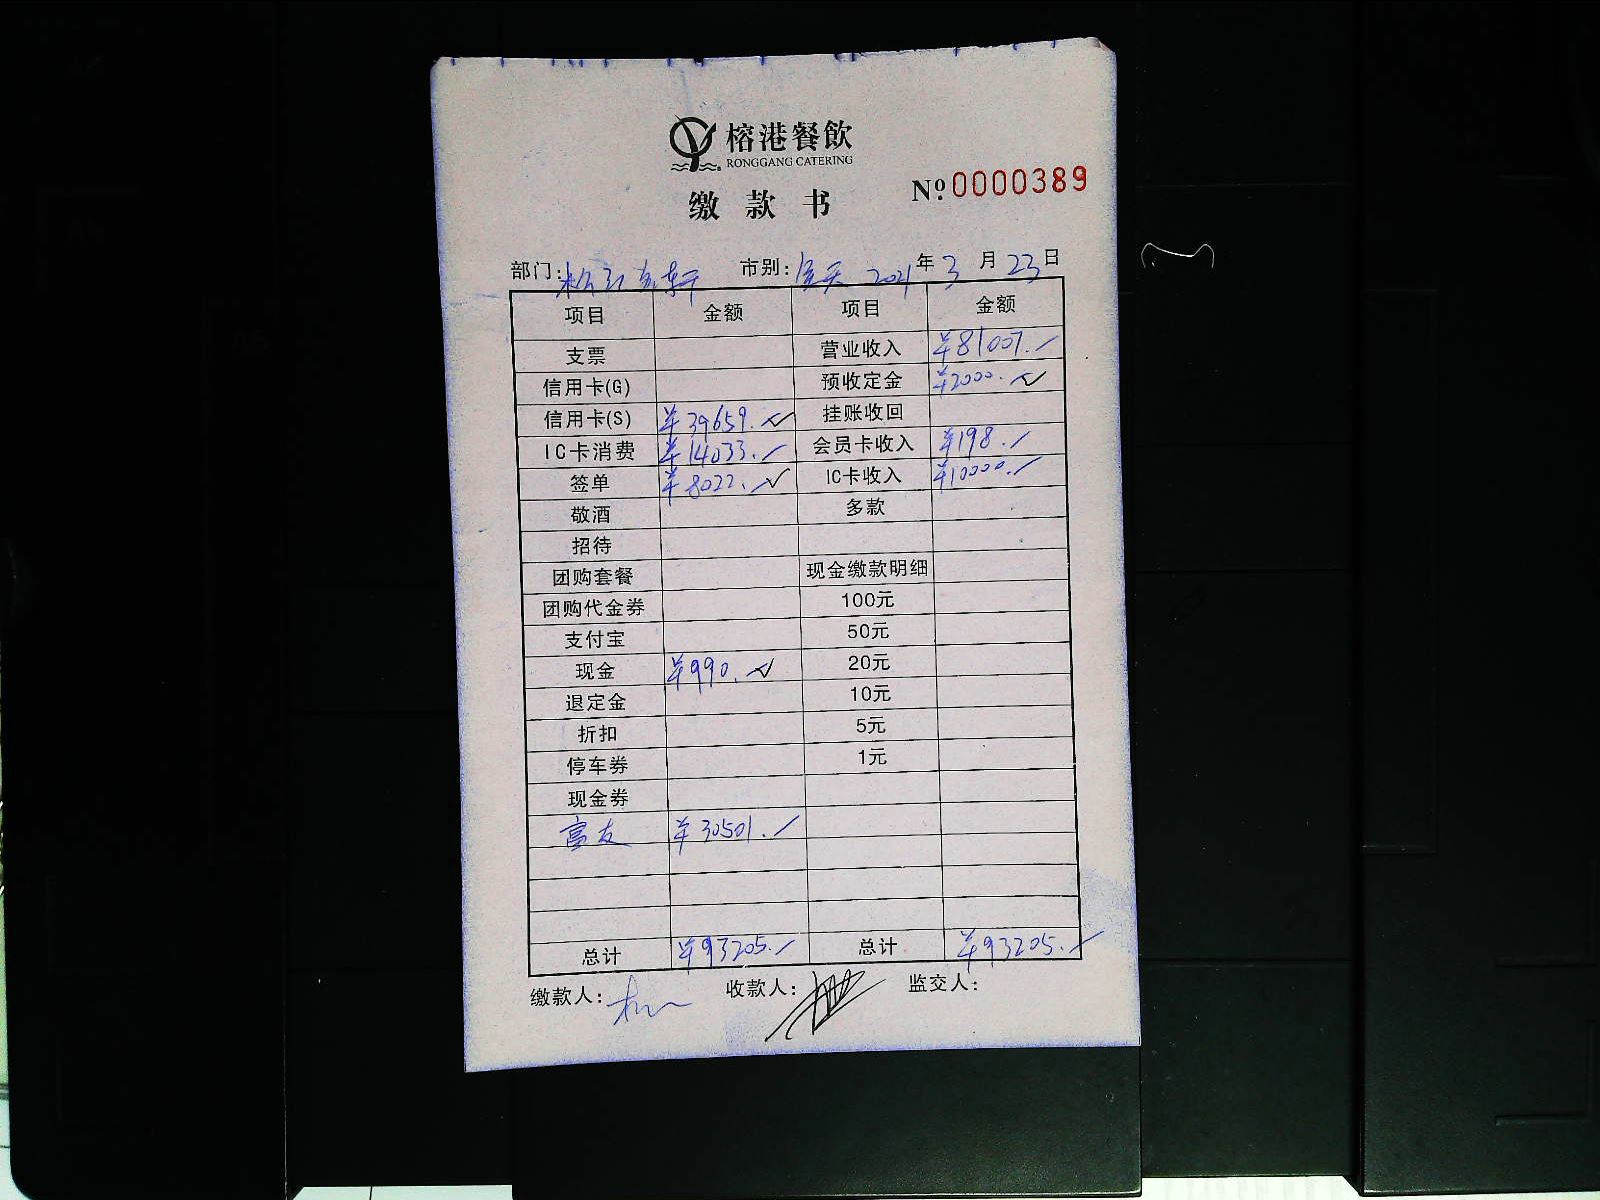 榕港餐飲
RONGGANG CATERING
缴款书 №0000389
部门: 市别: 全天 2021年3月23日
项目 金额 项目 金额
支票 营业收入 ¥81007.
信用卡(G) 预收定金 ¥2000.
信用卡(S) ¥39659. 挂账收回
IC卡消费 ¥14033. 会员卡收入 ¥198.
签单 ¥8022. IC卡收入 ¥10000.
敬酒 多款
招待
团购套餐 现金缴款明细
团购代金券 100元
支付宝 50元
现金 ¥990. 20元
退定金 10元
折扣 5元
停车券 1元
现金券
富友 ¥30501.
总计 ¥93205. 总计 ¥93205.
缴款人: 收款人: 监交人: